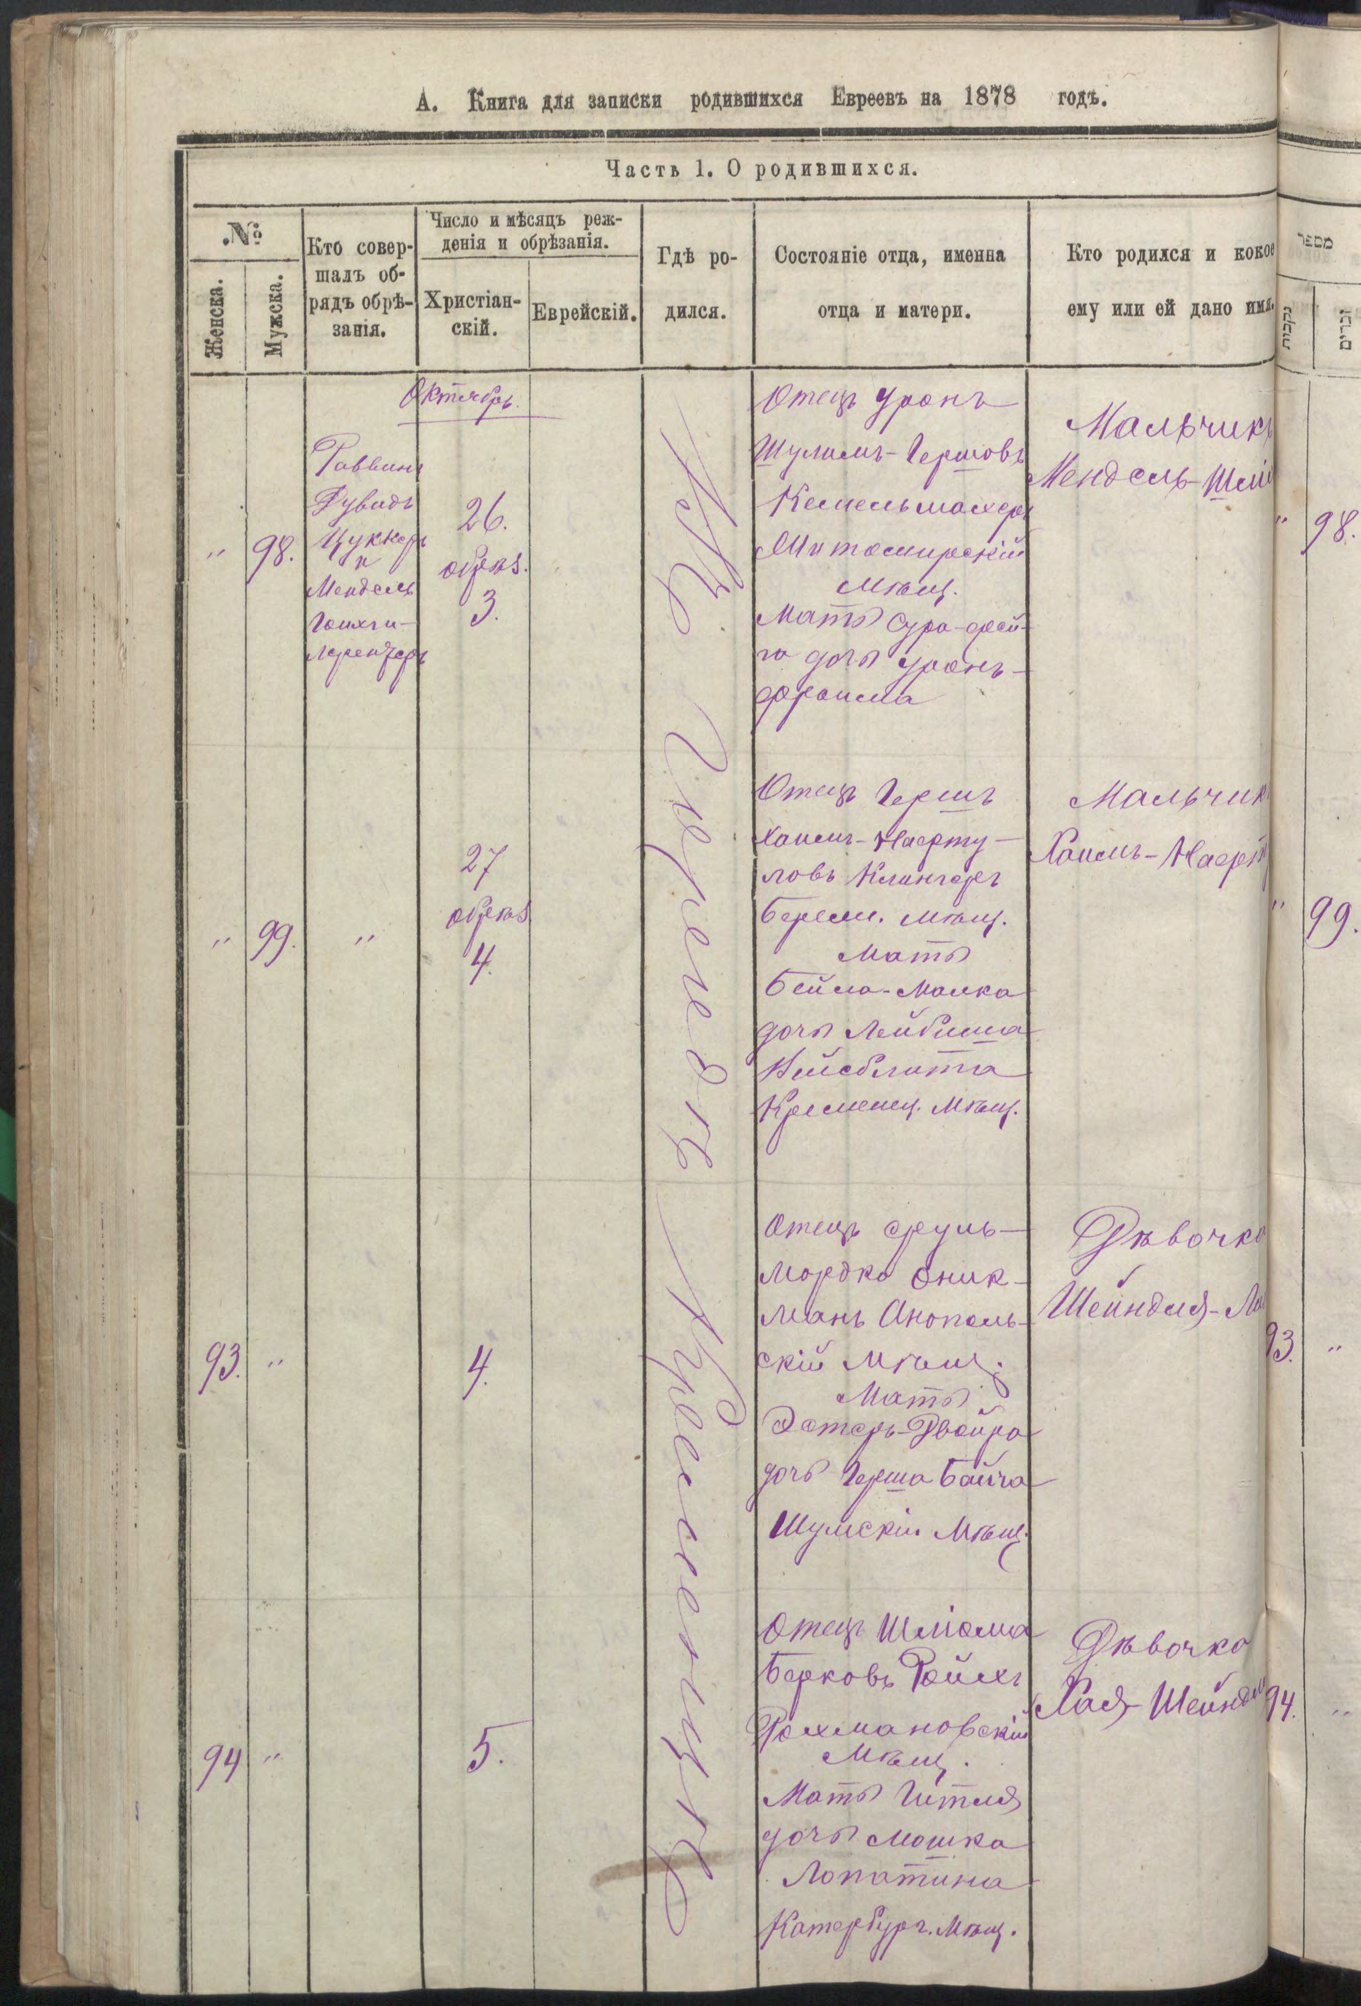 А. Книга для записки родившихся Евреевъ на 1878 годъ.
Часть 1. О родившихся.
№
Женска.
Мужска.
Кто совер-
шалъ об-
рядъ обрѣ-
занія.
Число и мѣсяцъ реж-
денія и обрѣзанія.
Христіан-
скій.
Еврейскій.
Гдѣ ро-
дился.
Состояніе отца, именна
отца и матери.
Кто родился и кокое
ему или ей дано имя.
מספר
נקבות
זכרים
Октябрь.
Въ городѣ Кременцѣ
„ 98.
Раввинъ
Цукеръ
и
Мендель
26.
обрѣз.
3.
Отецъ Уронъ
Шулимъ-Гершовъ
Житомирскій
Мѣщ.
Мать Сура-Фей-
га дочь Уронъ-
Фроима
Мальчикъ
Мендель-Шлі
„ 98.
„ 99. „
27
обрѣз.
4.
Отецъ Гершъ
Хаимъ-Нафту-
ловъ Клингеръ
Березн. Мѣщ.
Мать
Бейла-Малка
дочь Лейбиша
Вайсблата
Кременец. Мѣщ.
Мальчик
Хаимъ-Нафт
„ 99.
93. „
4.
Отецъ Сруль-
Мордко Оник-
манъ Анополь-
скій Мѣщ.
Мать
Эстеръ-Двойра
дочь Герша Байча
Шумскій Мѣщ.
Дѣвочка
Шейндля-Ла
93. „
94 „
5.
Отецъ Шліома
Берковъ Ройхъ
Рохмановскій
Мѣщ.
Мать Гитля
дочь Мошка
Лопатина
Катербург. Мѣщ.
Дѣвочка
Хая-Шейндля
94. „